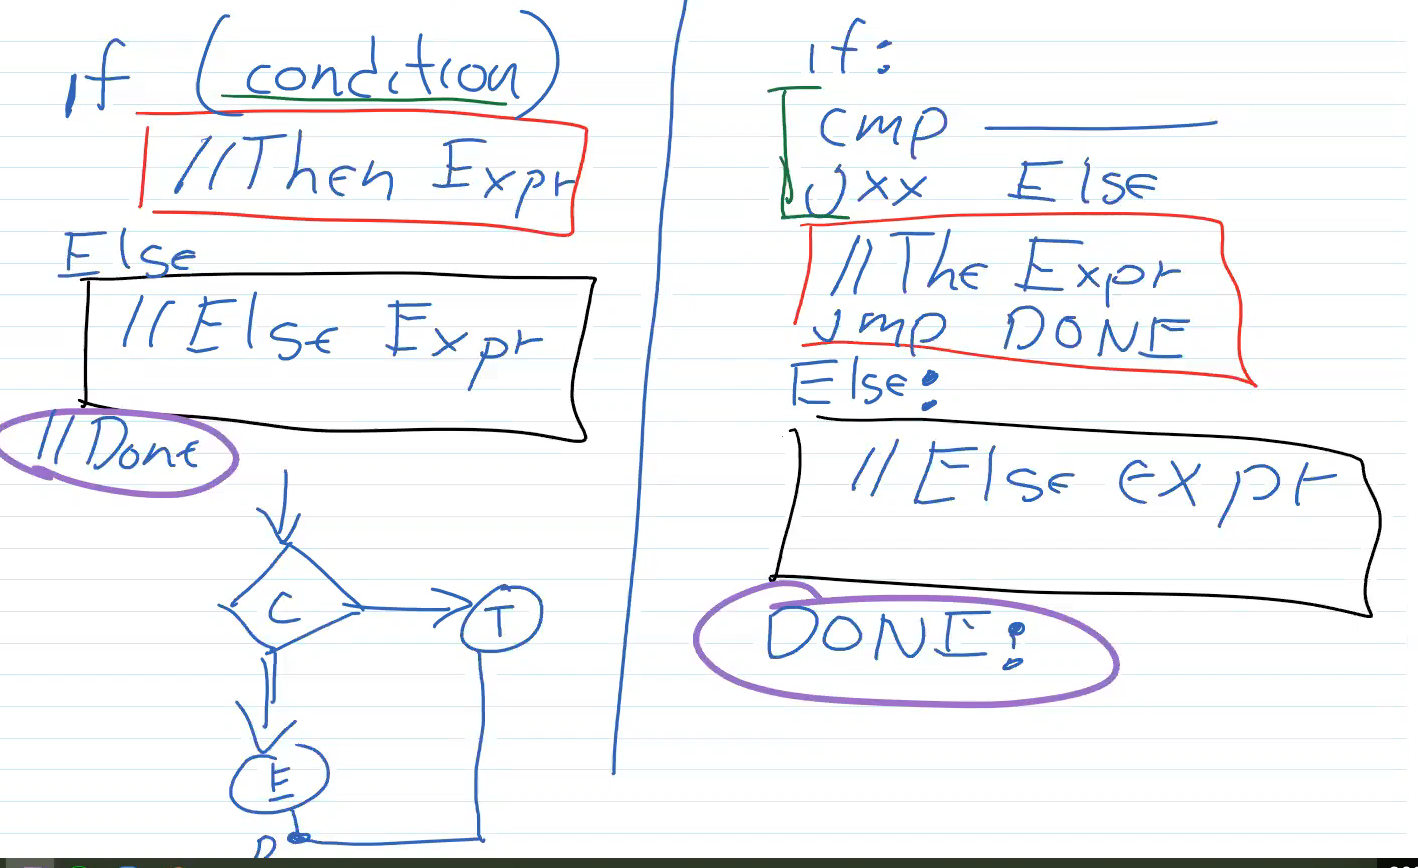 if (condition)
//Then Expr
Else
//Else Expr
//Done
C
T
E
D
if:
cmp
Jxx Else
//The Expr
Jmp DONE
Else:
//Else expr
DONE: